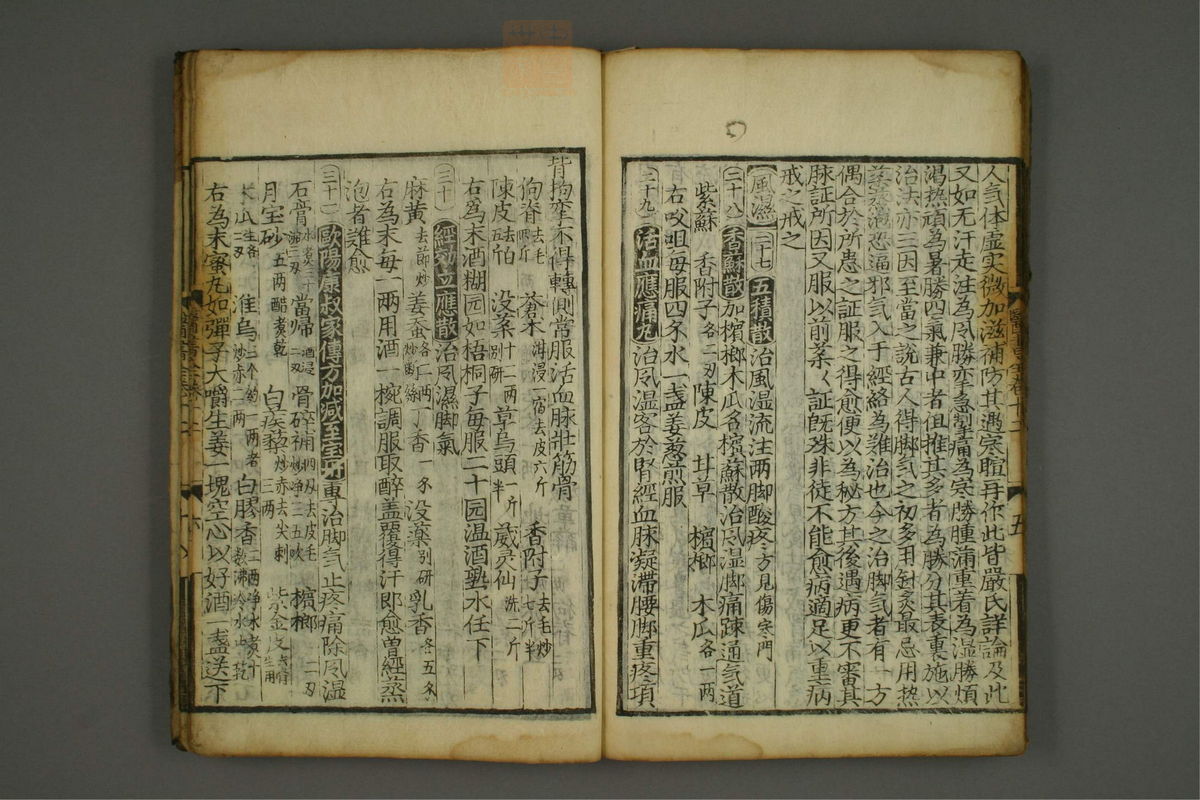 人气体虚实微加滋補防其遇寒暄再作此皆嚴氏詳論及此
又如无汗走注为风勝挛急掣痛为寒勝腫満重著为湿勝煩
渴热頑为暑勝四氣兼中者但推其多者为勝分其表裏施以
治法亦三因至當之説古人得脚气之初多用針灸最忌用热
薬蒸泡恐逼邪气入于經絡为難治也今之治脚气者有一方
偶合於所患之証服之得愈便以为秘方其後遇病更不審其
脉証所因又服以前薬薬証既殊非徒不能愈病適足以重病
戒之戒之
風濕 二十七 五積散 治風湿流注两脚酸疼方見傷寒門
二十八 香蘇散 加檳榔木瓜名檳蘇散治风湿脚痛踈通气道
紫蘇 香附子各二刄 陳皮 甘草 檳榔 木瓜各一两
右㕮咀毎服四爻水一盏姜葱煎服
二十九 活血應痛丸 治风湿客於腎經血脉凝滯腰脚重疼項
背拘挛不得轉側常服活血脉壮筋骨
狗脊去毛四斤 蒼术泔浸一宿去皮六斤 香附子去毛炒七斤半
陳皮去白五斤 没薬十二两別研 草烏頭一斤半 威灵仙洗二斤
右为末酒糊园如梧桐子毎服二十园温酒熟水任下
三十 經効立應散 治风濕脚氣
麻黄去節炒 姜蚕各二两炒断絲 丁香一爻 没藥別研 乳香各五爻
右为末毎一两用酒一椀調服取醉盖覆得汗即愈曽經蒸
泡者難愈
三十一 歐陽康叔家傳方加减至宝丹 專治脚气止疼痛除风温
石膏 當帰酒浸二刄 骨碎補四刄去皮毛炒 檳榔二刄
月宝砂五两醋煮乾 白疾藜炒赤去尖刺三两 紫金皮
木瓜生各二刄 淮烏 白膠香二两浄水煮十数沸冷水
右为末蜜丸如弾子大嚼生姜一塊空心以好酒一盏送下